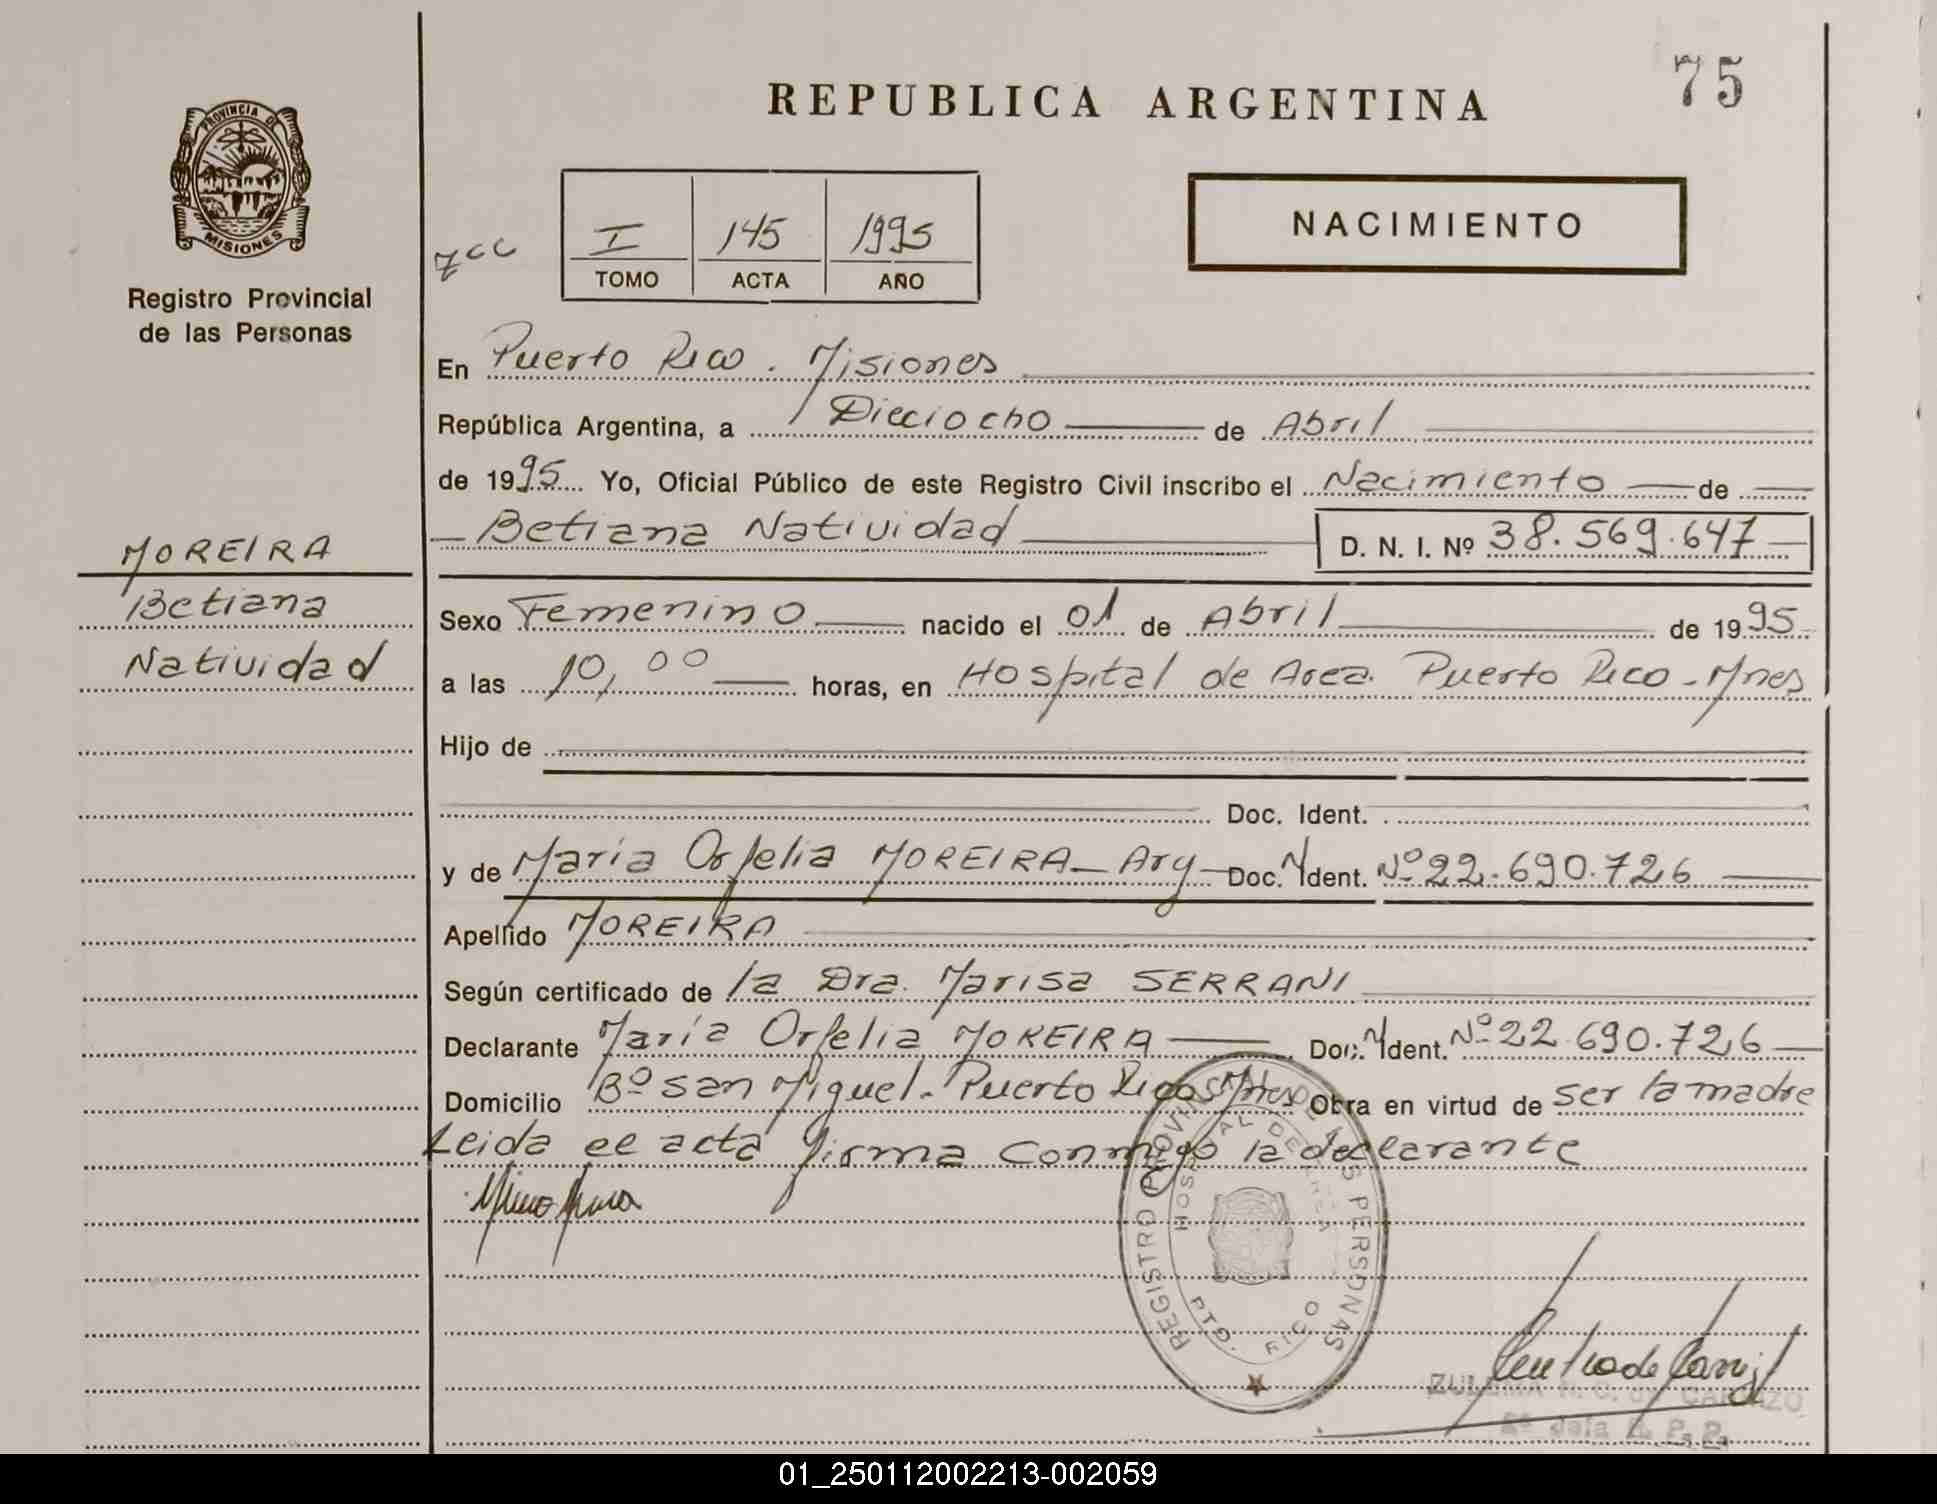 75
REPUBLICA ARGENTINA
PROVINCIA DE
MISIONES
Registro Provincial
de las Personas
I 145 1995
TOMO ACTA AÑO
NACIMIENTO
En Puerto Rico. Misiones
República Argentina, a Dieciocho de Abril
de 1995 Yo, Oficial Público de este Registro Civil inscribo el Nacimiento de
Betiana Natividad D. N. I. Nº 38.569.647
MOREIRA
Betiana
Natividad
Sexo Femenino nacido el 01 de Abril de 1995
a las 10,00 horas, en Hospital de Area. Puerto Rico - Mnes
Hijo de
Doc. Ident.
y de María Orfelia MOREIRA - Arg - Doc. Ident. Nº 22.690.726
Apellido MOREIRA
Según certificado de la Dra. Marisa SERRANI
Declarante María Orfelia MOREIRA Doc. Ident. Nº 22.690.726
Domicilio Bº San Miguel - Puerto Rico Mnes Obra en virtud de ser la madre
Leida el acta firma conmigo la declarante
REGISTRO PROVINCIAL DE LAS PERSONAS
HOSPITAL DE AREA
PTO. RICO
ZULEMA N. C. de CARDOZO
01_250112002213-002059